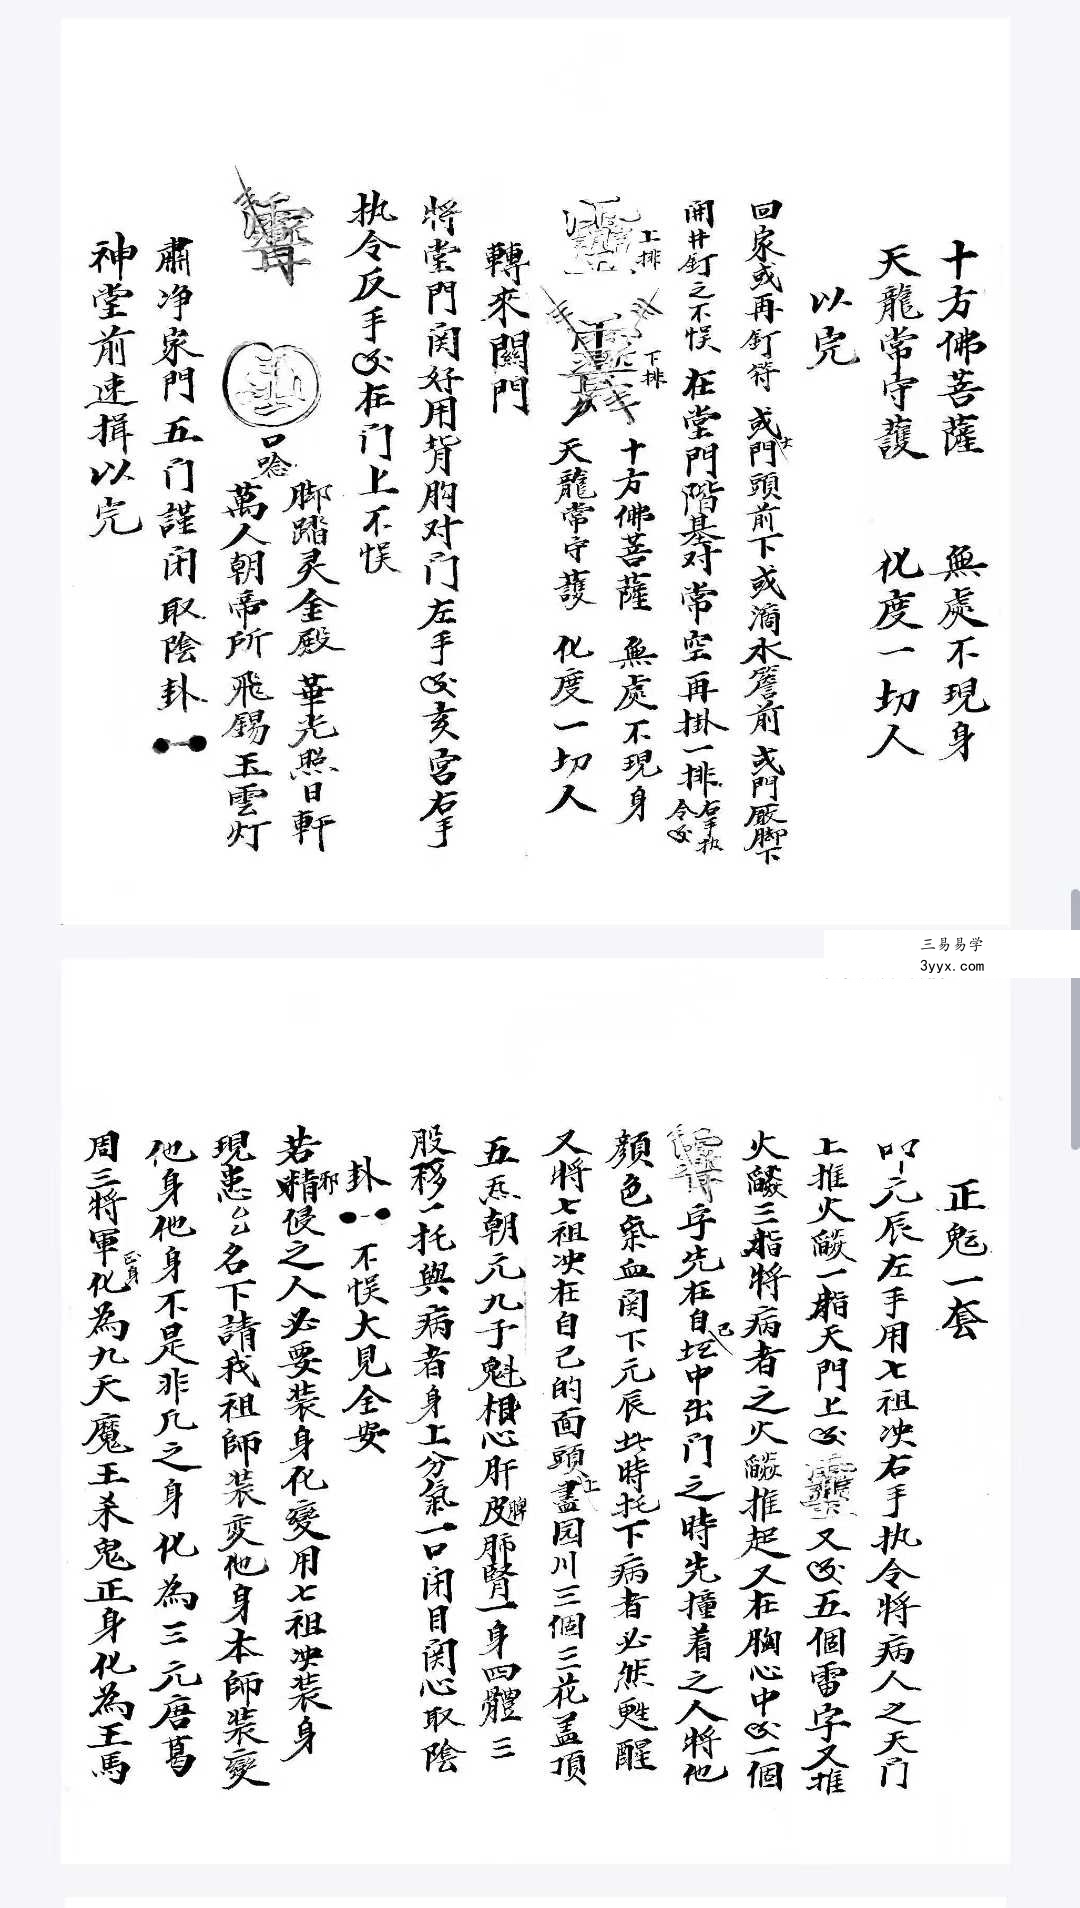 十方佛菩薩 無處不現身
天龍常守護 化度一切人
以完
回家或再釘符 或門頭前下或滴水簷前 或門厫脚下
開井釘之不悮 在堂門階基对常空再掛一排右手执令
上排
下排
十方佛菩薩 無處不現身
天龍常守護 化度一切人
轉來關門
將堂門関好用背胸对门左手亥宮右手
执令反手在门上不悮
口唸
脚踏灵金殿 華光照日軒
萬人朝帝所 飛錫玉雲灯
肅净家門五门謹闭取陰卦
神堂前速揖以完
三易易学
3yyx.com
正鬼一套
叩元辰左手用七祖决右手执令将病人之天门
上推火燄一指天門上又五個雷字又推
火燄三指將病者之火燄推起又在胸心中一個
字先在自己坛中出门之時先撞着之人將他
顏色氣血関下元辰此時托下病者必然甦醒
又將七祖决在自己的面頭上畫园川三個三花盖頂
五炁朝元九子魁相心肝皮脾肺腎一身四體三
股移一托與病者身上分氣一口闭目関心取陰
卦 不悮大見全安
若精邪侯之人必要装身化變用七祖决装身
現患厶厶名下請我祖師装变他身本師装變
他身他身不是非凡之身化為三元唐葛
周三將軍正身化為九天魔王杀鬼正身化為王馬